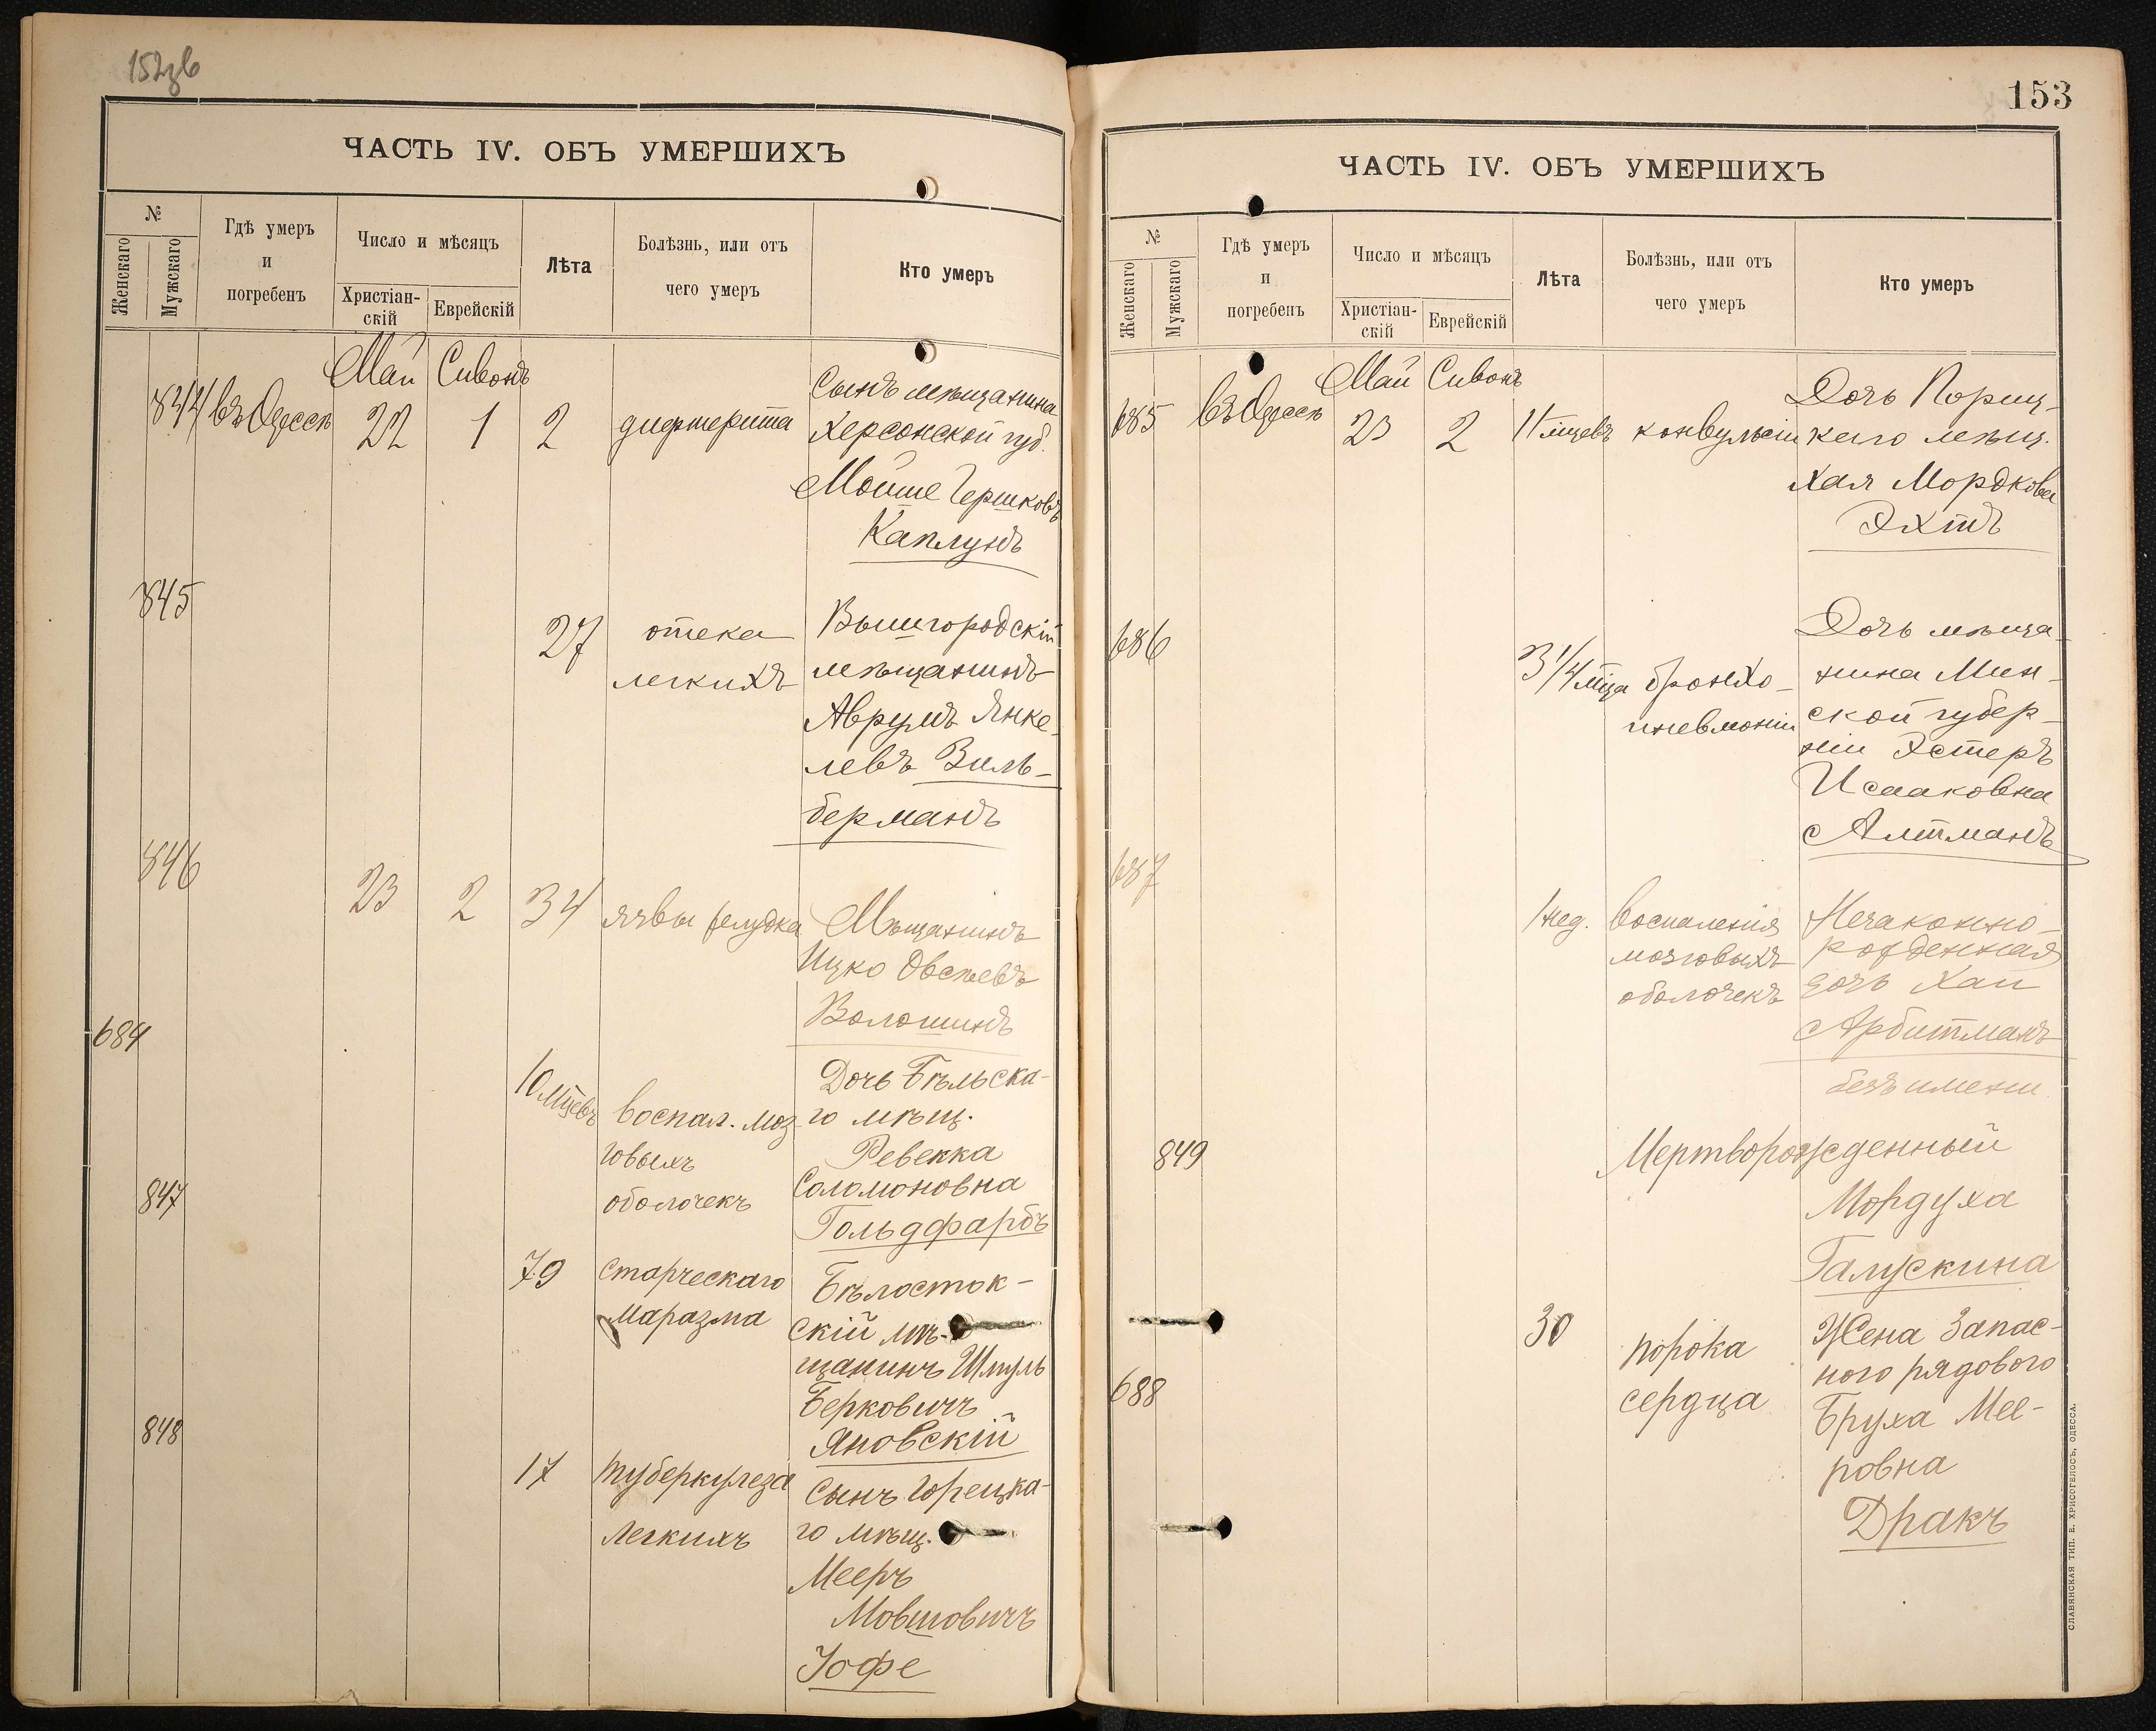 152зв
ЧАСТЬ IV. ОБЪ УМЕРШИХЪ
№
Женскаго
Мужскаго
Гдѣ умеръ
и
погребенъ
Число и мѣсяцъ
Христіан-
скій
Еврейскій
Лѣта
Болѣзнь, или отъ
чего умеръ
Кто умеръ
Май Сивонъ
844 въ Одессѣ 22 1 2 дифтерита
Сынъ мѣщанина
Херсонской губ.
Мойше Гершковъ
Каплунъ
845
27 отека
легкихъ
Вышгородскій
мѣщанинъ
Аврумъ Янке-
левъ Зиль-
берманъ
846
23 2 34 язвы желудка
Мѣщанинъ
Ицко Овсѣевъ
Волошинъ
684
10 мцевъ воспал. моз-
говыхъ
оболочекъ
Дочь Бѣльска-
го мѣщ.
Ревекка
Соломоновна
Гольдфарбъ
847
79 старческаго
маразма
Бѣлосток-
скій мѣ-
щанинъ Шмуль
Берковичъ
Яновскій
848
17 туберкулеза
легкихъ
Сынъ Горецка-
го мѣщ.
Мееръ
Мовшовичъ
Іофе
153
ЧАСТЬ IV. ОБЪ УМЕРШИХЪ
№
Женскаго
Мужскаго
Гдѣ умеръ
и
погребенъ
Число и мѣсяцъ
Христіан-
скій
Еврейскій
Лѣта
Болѣзнь, или отъ
чего умеръ
Кто умеръ
Май Сивонъ
685 въ Одессѣ 23 2 11 мцевъ конвульсіи
Дочь Пориц-
каго мѣщ.
Хая Мордкова
Эхтъ
686
3 1/4 мца бронхо-
пневмоніи
Дочь мѣща-
нина Мин-
ской губер-
ніи Эстеръ
Исааковна
Алтманъ
687
1 нед. воспаленія
мозговыхъ
оболочекъ
Незаконно-
рожденная
дочь Хаи
Арбитманъ
безъ имени
849
Мертворожденный
Мордуха
Галускина
688
30 порока
сердца
Жена Запас-
ного рядового
Бруха Мее-
ровна
Дракъ
СЛАВЯНСКАЯ ТИП. Е. ХРИСОГЕЛОСЪ, ОДЕССА.